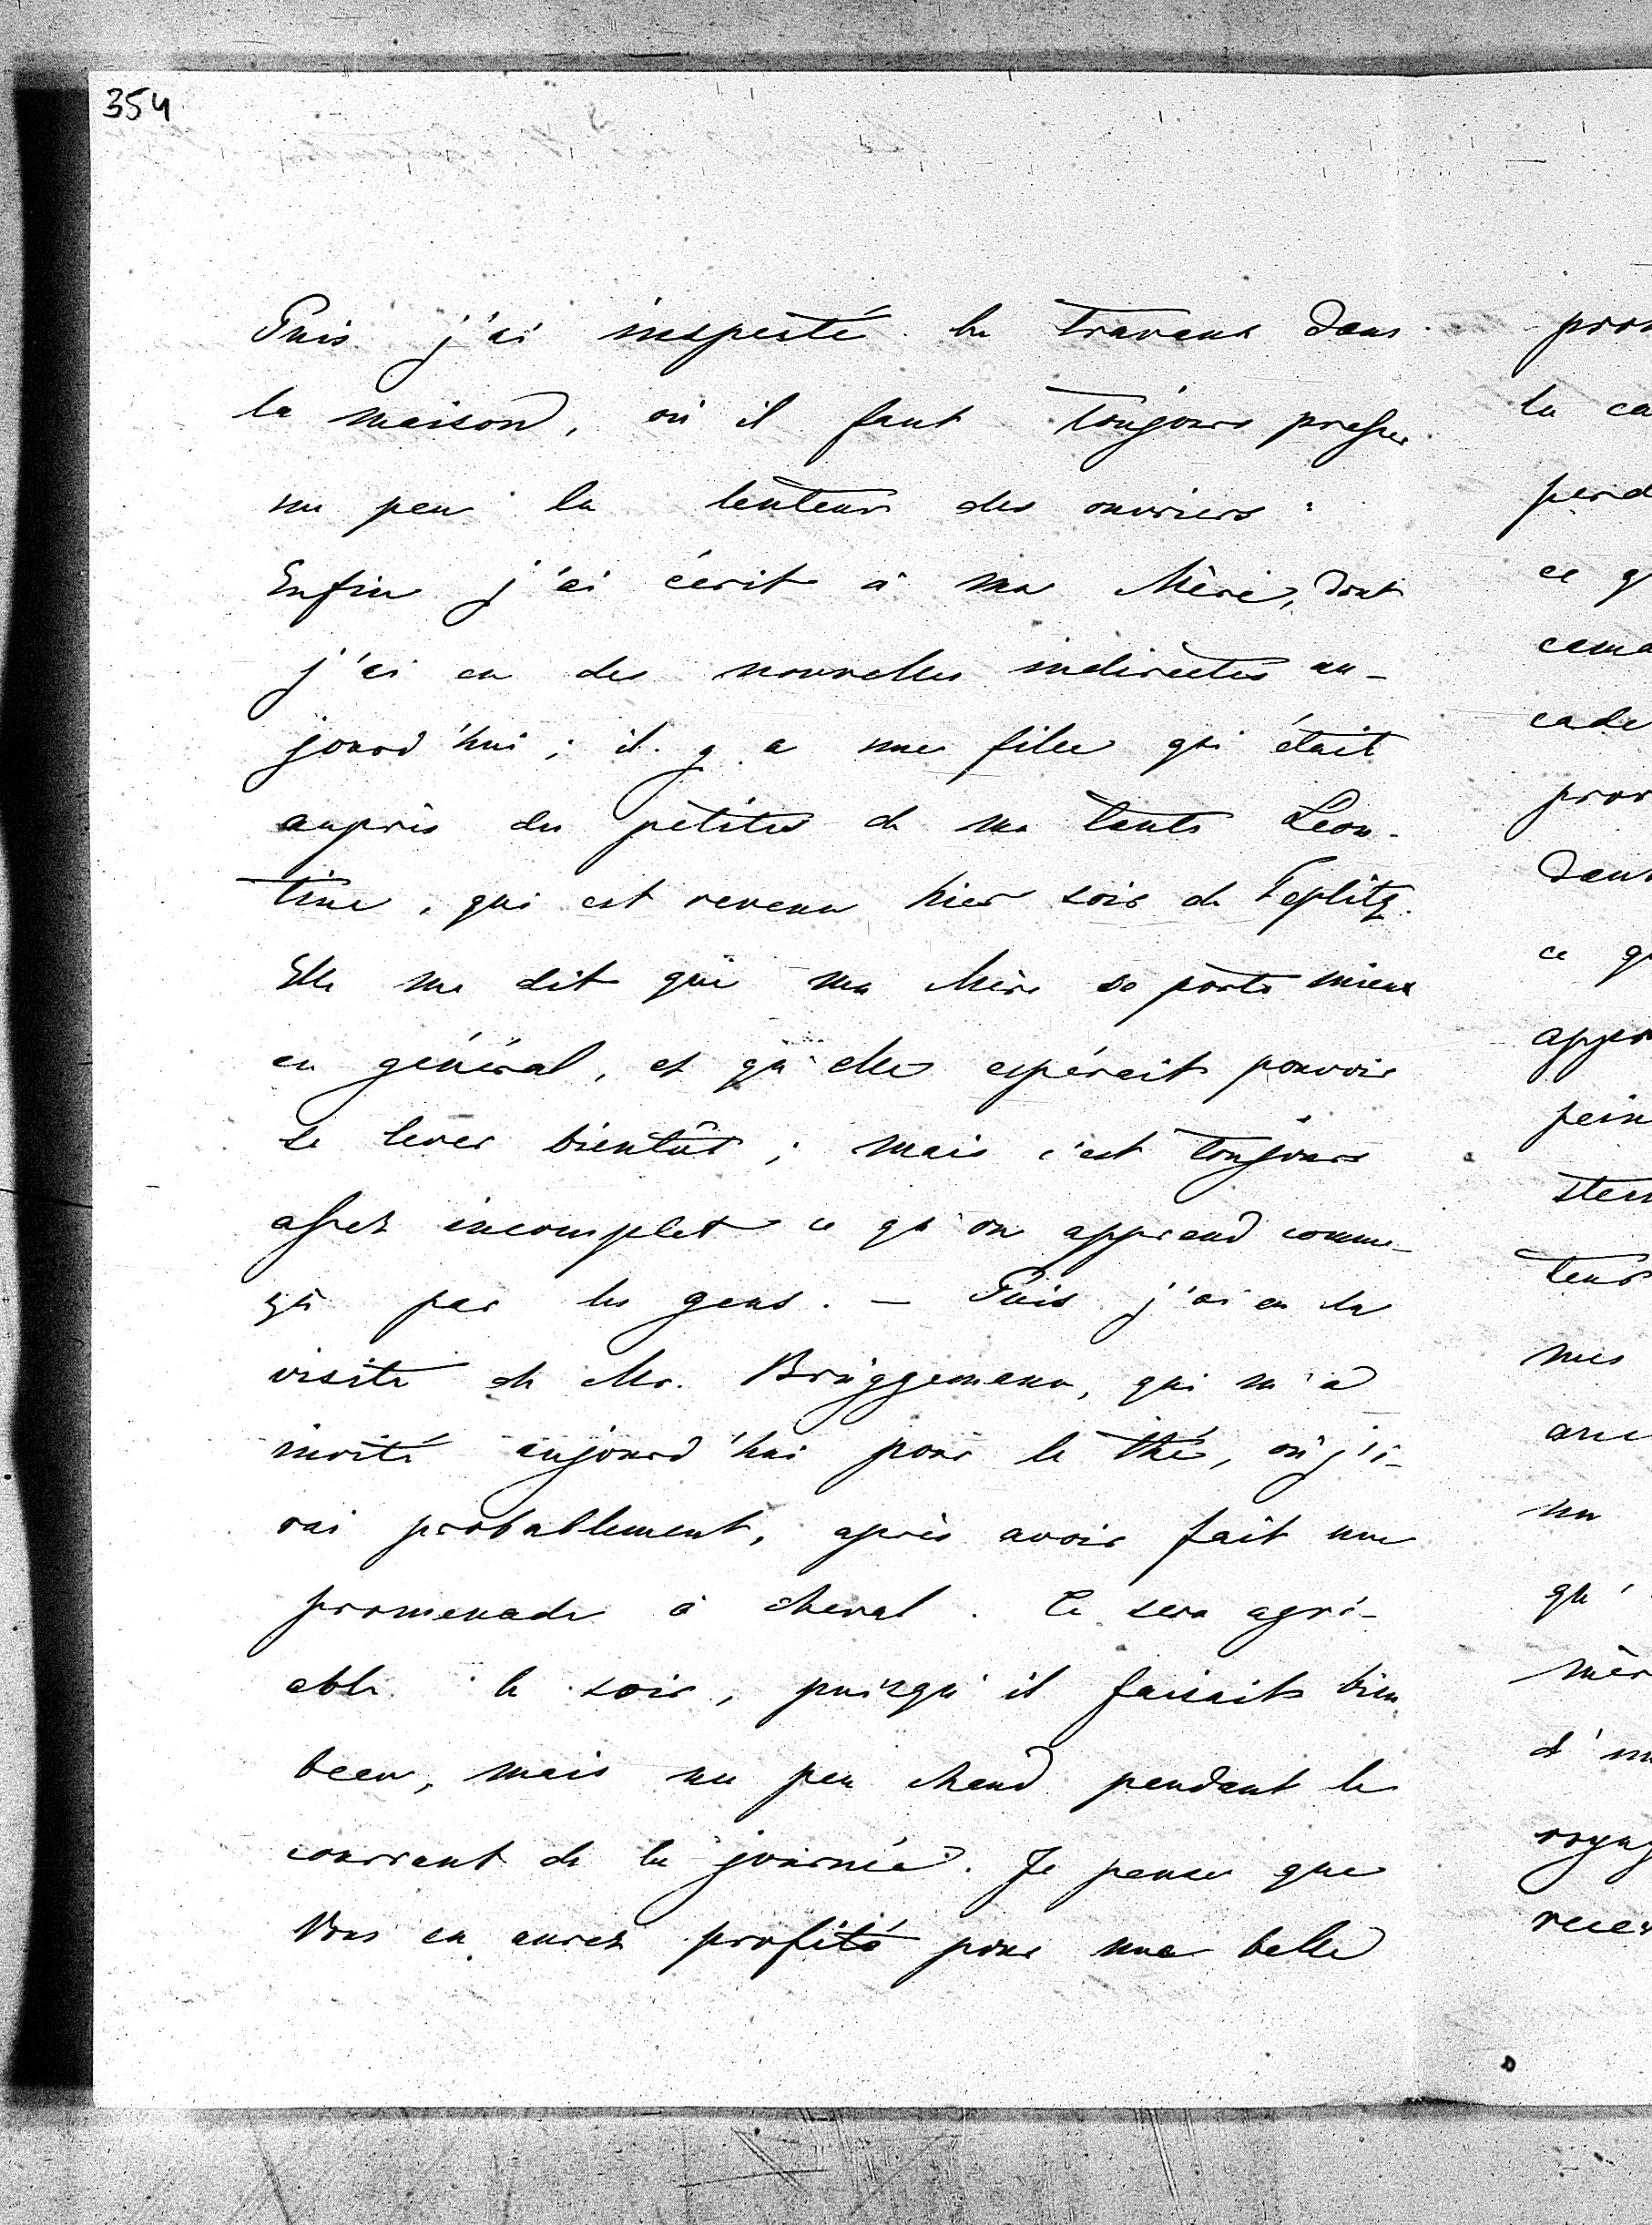 354
Puis j'ai inspecté les travaux dans
la maison, où il faut toujours presser
un peu la lenteur des ouvriers.
Enfin j'ai écrit à ma Mère, dont
j'ai eu des nouvelles indirectes au-
jourd'hui; il y a une fille qui était
auprès des petites de ma tante Léon-
tine, qui est revenu hier soir de Teplitz.
Elle me dit que ma Mère se porte mieux
en général, et qu'elle espérait pouvoir
se lever bientôt; mais c'est toujours
assez incomplet ce qu'on apprend comme
çà par les gens. — Puis j'ai eu la
visite de Mr. Brüggemann, qui m'a
invité aujourd'hui pour le thé, où j'i-
rai probablement, après avoir fait une
promenade à cheval. Ce sera agré-
able le soir, puisqu'il faisait bien
beau, mais un peu chaud pendant le
courrant de la journée. Je pense que
Vous en aurez profité pour une belle
la ca
perd
ce q
cade
dans
ce q
pein
teur
mes
un
qu'